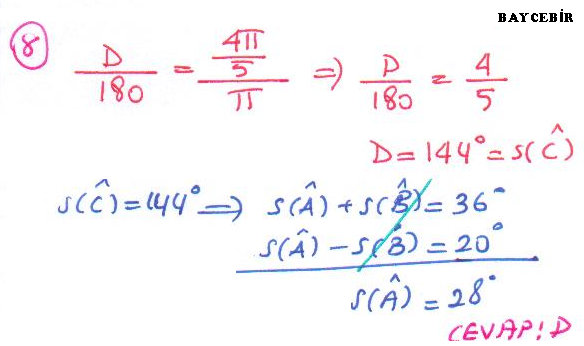 BAYCEBİR
8
D/180 = (4π/5)/π ⇒ D/180 = 4/5
D = 144° = s(Ĉ)
s(Ĉ) = 144° ⇒ s(Â) + s(B̂) = 36°
s(Â) - s(B̂) = 20°
s(Â) = 28°
CEVAP: D